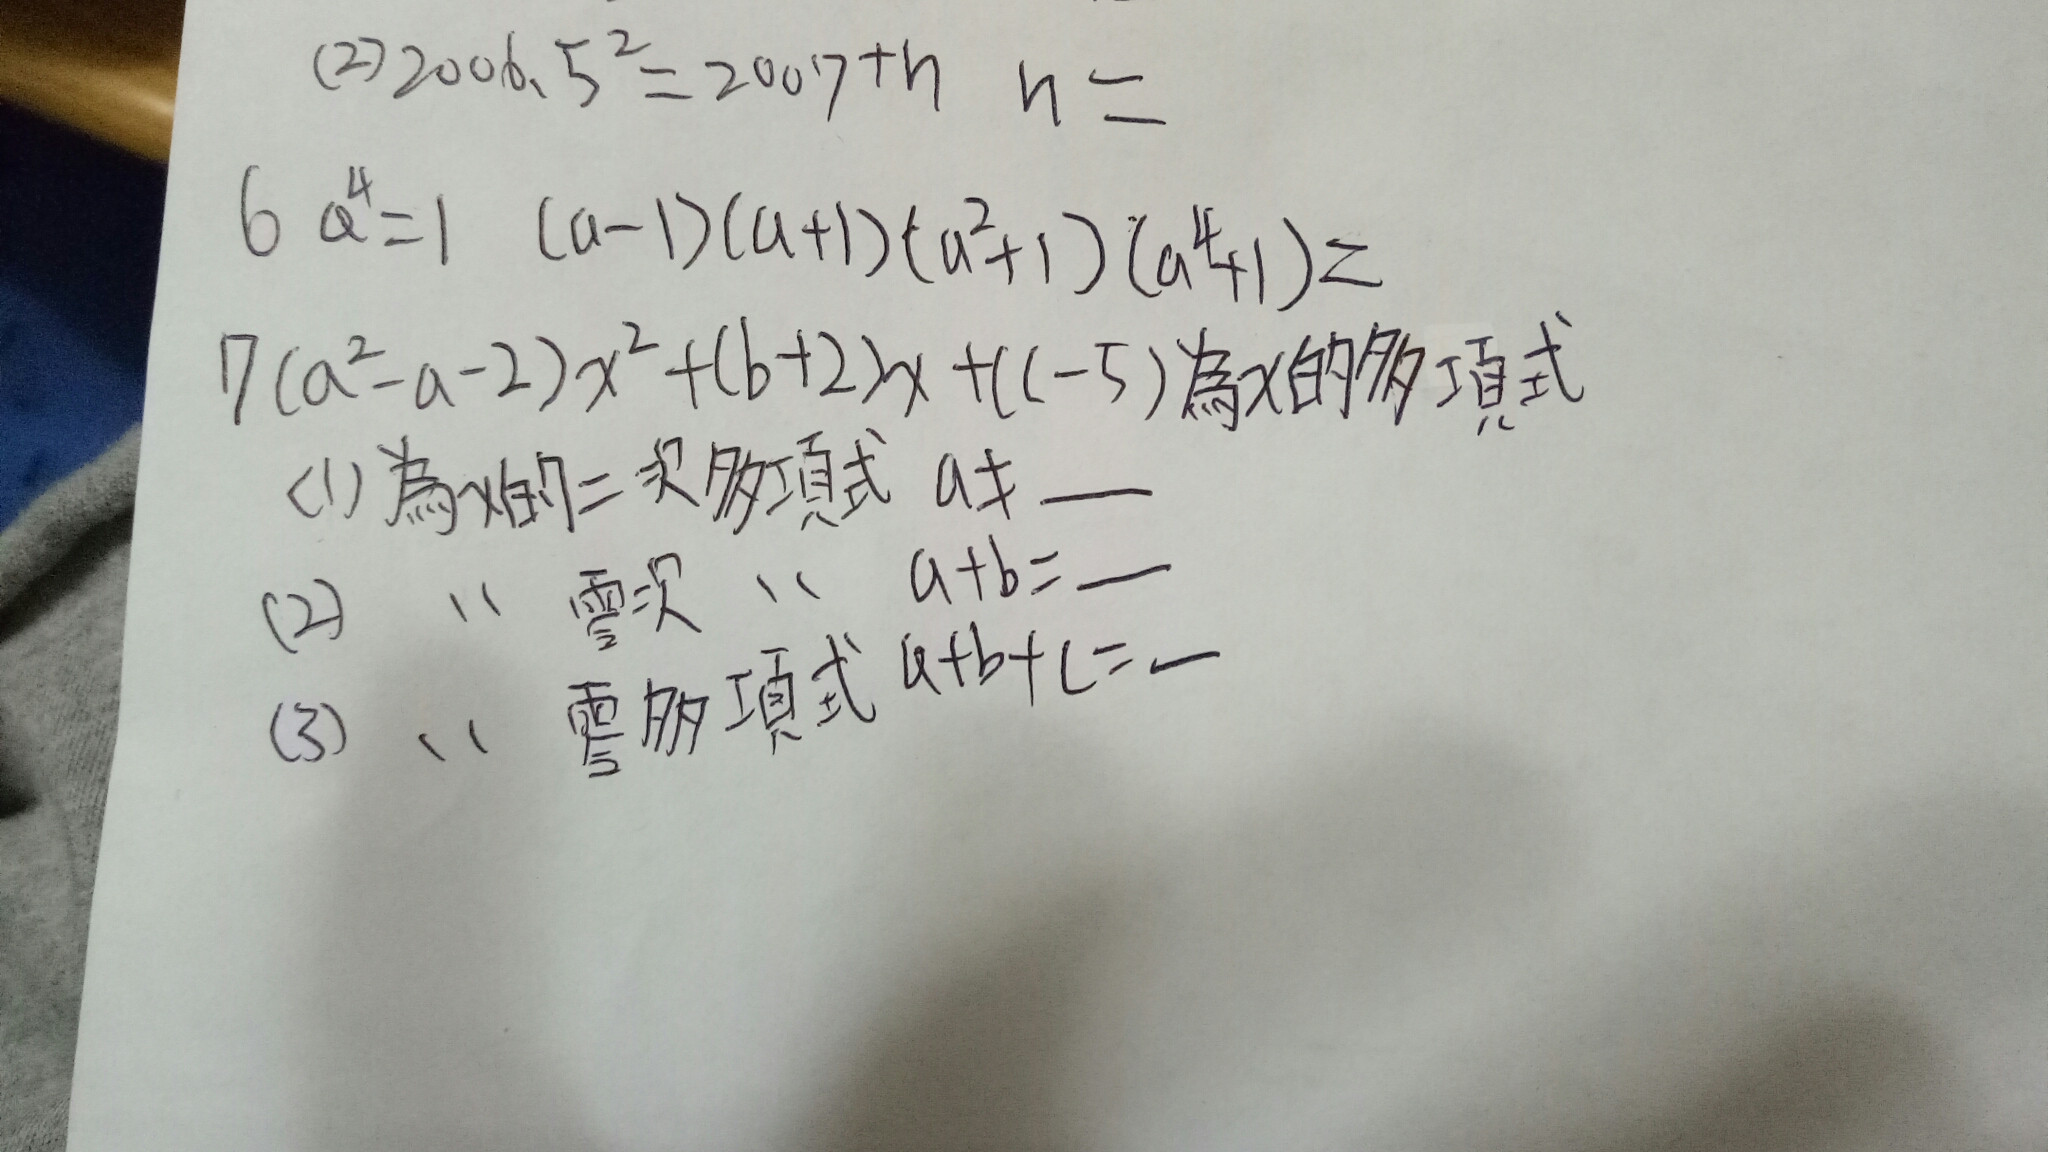 (2) 2006.5²=2007+n n=
6 a⁴=1 (a-1)(a+1)(a²+1)(a⁴+1)=
7 (a²-a-2)x²+(b+2)x+(c-5)為x的多項式
(1) 為x的二次多項式 a≠__
(2) 〃 零次 〃 a+b=__
(3) 〃 零多項式 a+b+c=__